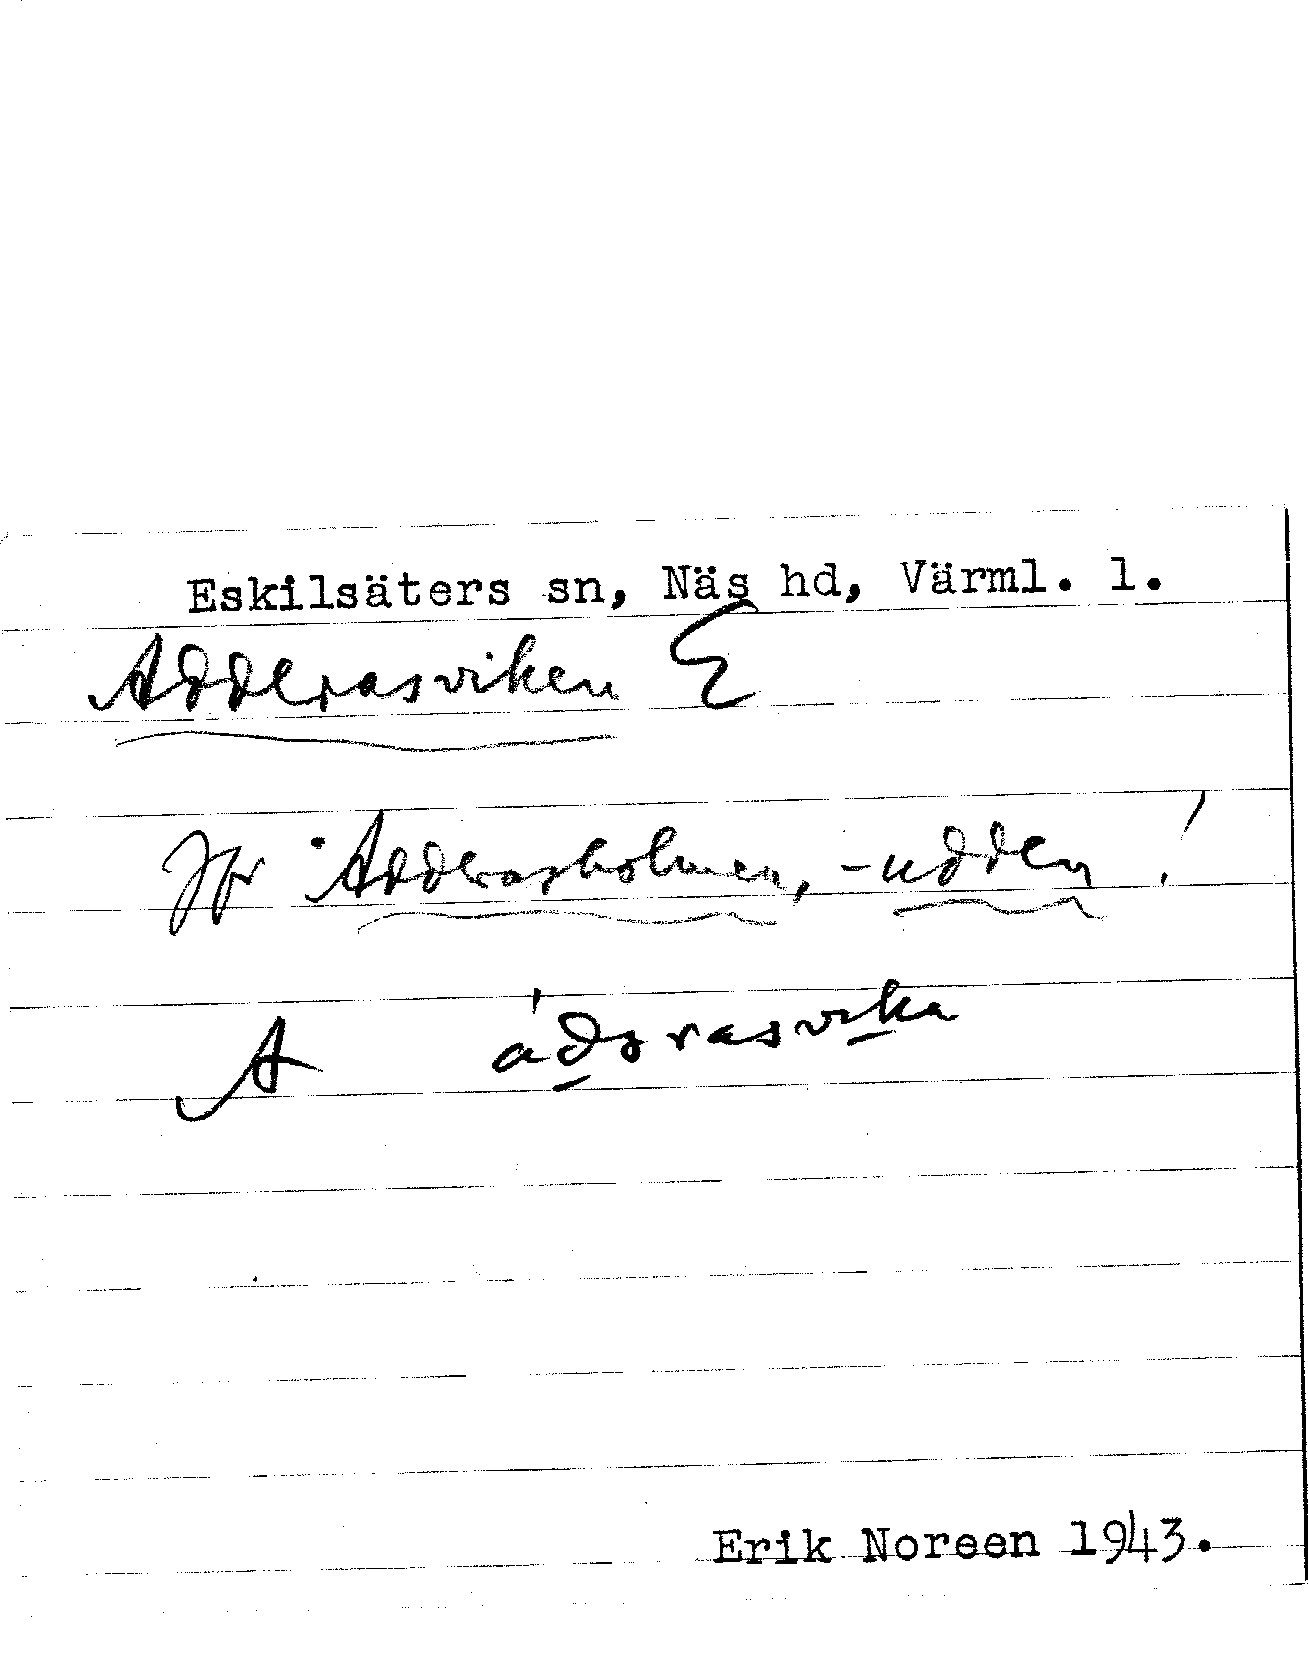 Eskilsäters sn, Näs hd, Värml. l.
Adderasviken E
Jfr Adderasholmen, -udden!
A ádərasvika
Erik Noreen 1943.